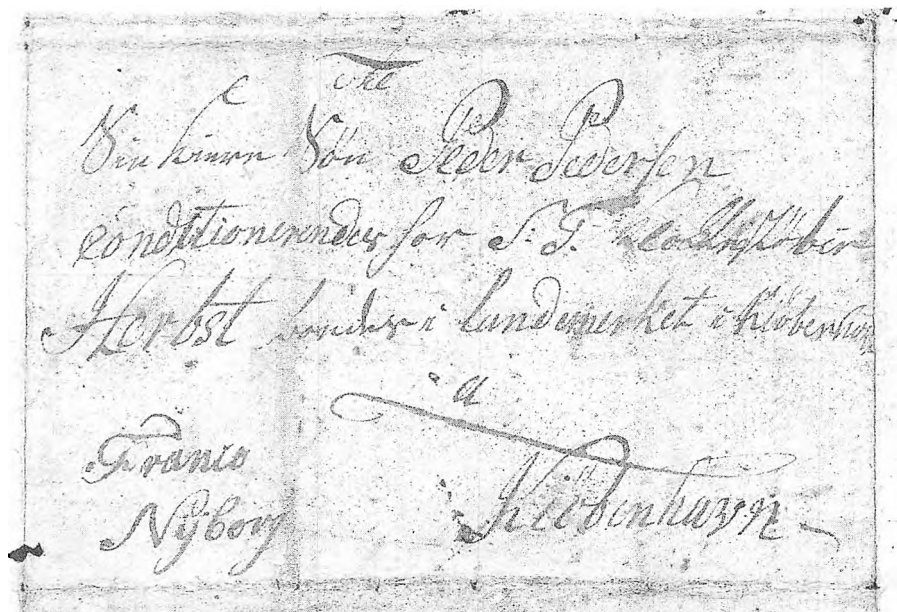 Til
Min kiere Søn Peder Pedersen
Conditionerendes for S. T. Klædekiøber
Herbst boendes i landemerket i Kiøbenhavn
a
Franco
Nÿborg
Kiöbenhavn